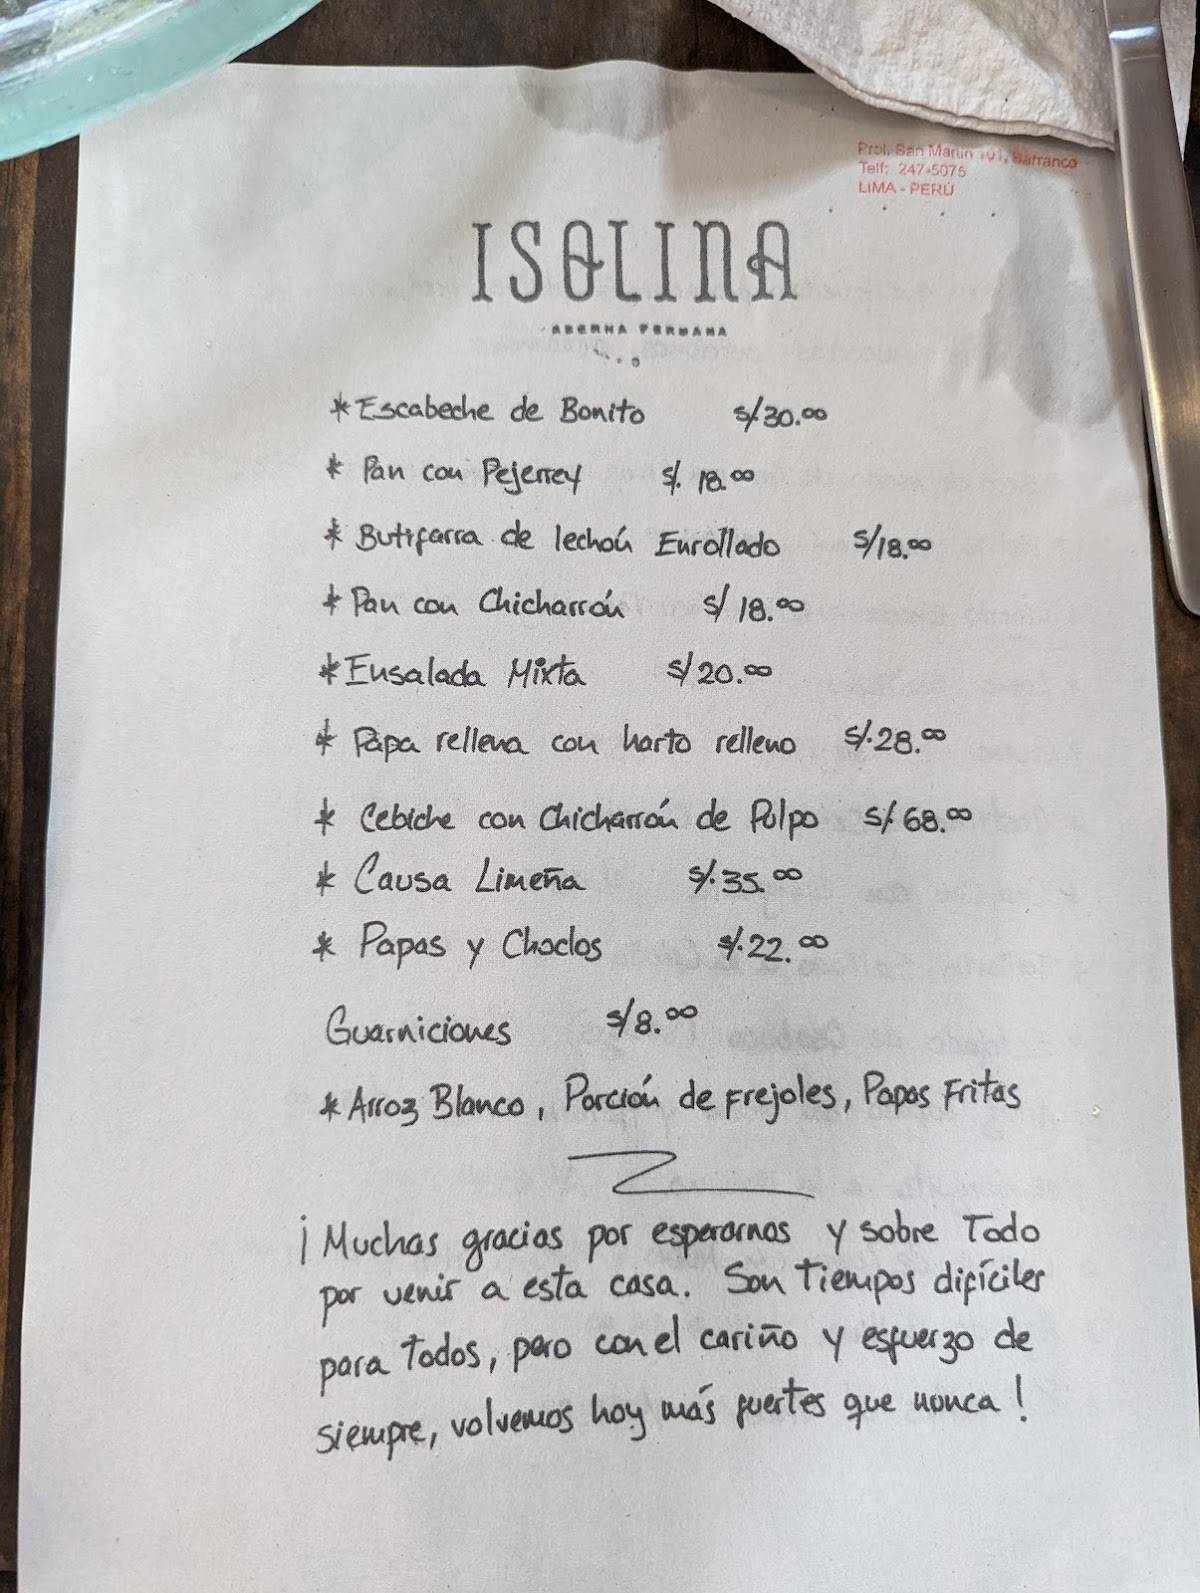 Prol. San Martin 101, Barranco
Telf: 247-5075
LIMA - PERÚ
ISOLINA
ABERNA PERUANA
*Escabeche de Bonito S/.30.00
* Pan con Pejerrey S/. 18.00
* Butifarra de lechón Enrollado S/18.00
* Pan con Chicharrón S/ 18.00
*Ensalada Mixta S/20.00
* Papa rellena con harto relleno S/.28.00
* Cebiche con Chicharrón de Pulpo S/.68.00
* Causa Limeña S/.35.00
* Papas y Choclos S/.22.00
Guarniciones S/8.00
* Arroz Blanco, Porción de Frejoles, Papas Fritas
¡Muchas gracias por esperarnos y sobre Todo
por venir a esta casa. Son Tiempos difíciles
para Todos, pero con el cariño y esfuerzo de
siempre, volvemos hoy más fuertes que nunca!